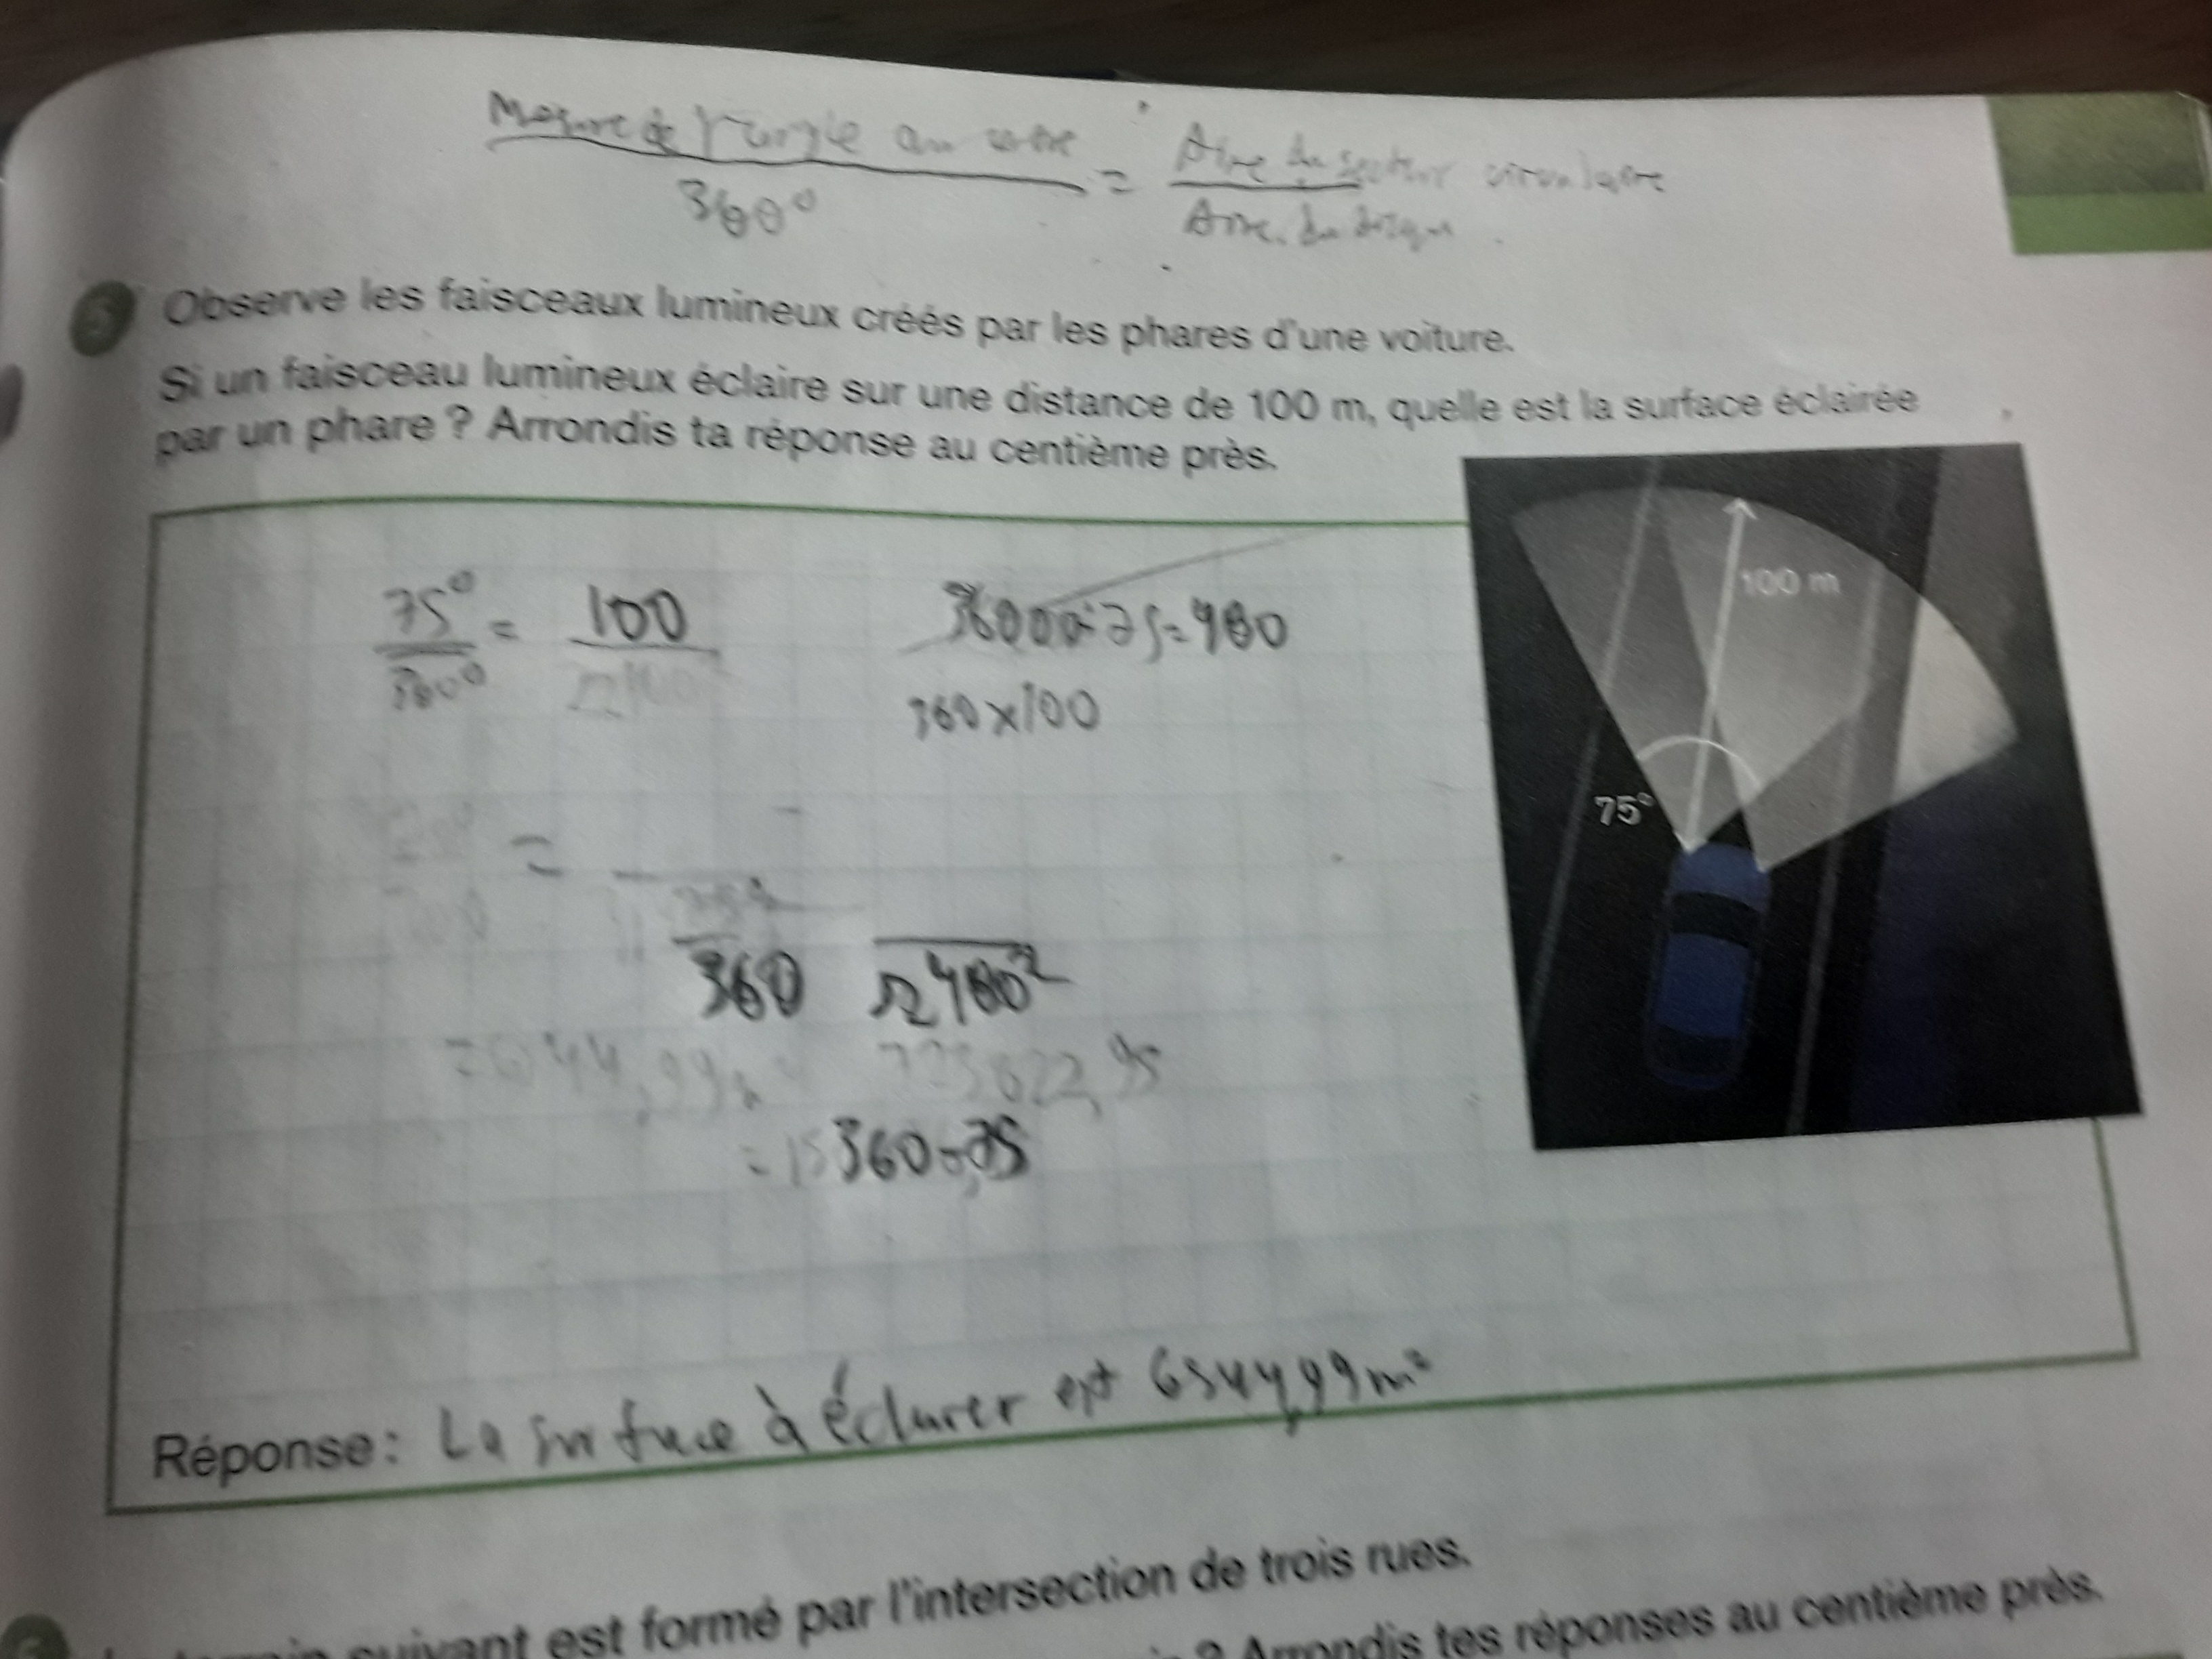 Mesure de l'angle au centre = Aire du secteur circulaire
360° Aire du disque
5 Observe les faisceaux lumineux créés par les phares d'une voiture.
Si un faisceau lumineux éclaire sur une distance de 100 m, quelle est la surface éclairée
par un phare ? Arrondis ta réponse au centième près.
75° = 100
360°
36000÷75=480
360x100
100 m
75°
=
360
360÷75
Réponse : La surface à éclairer est 6544,99m²
suivant est formé par l'intersection de trois rues.
? Arrondis tes réponses au centième près.